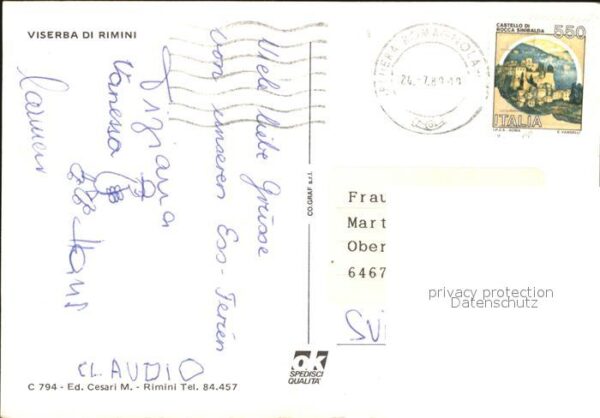 VISERBA DI RIMINI
Viele liebe Grüsse
von unseren Ess-Ferien
Tiziana
Vanessa
Hans
Carmen
CLAUDIO
C 794 - Ed. Cesari M. - Rimini Tel. 84.457
CO.GRAF s.r.l.
ok
SPEDISCI
QUALITA'
CASTELLO DI
ROCCA SINIBALDA
550
ITALIA
I.P.Z.S. ROMA
E. VANGELLI
RIVIERA ROMAGNOLA
Frau
Mart
Ober
6467
privacy protection
Datenschutz